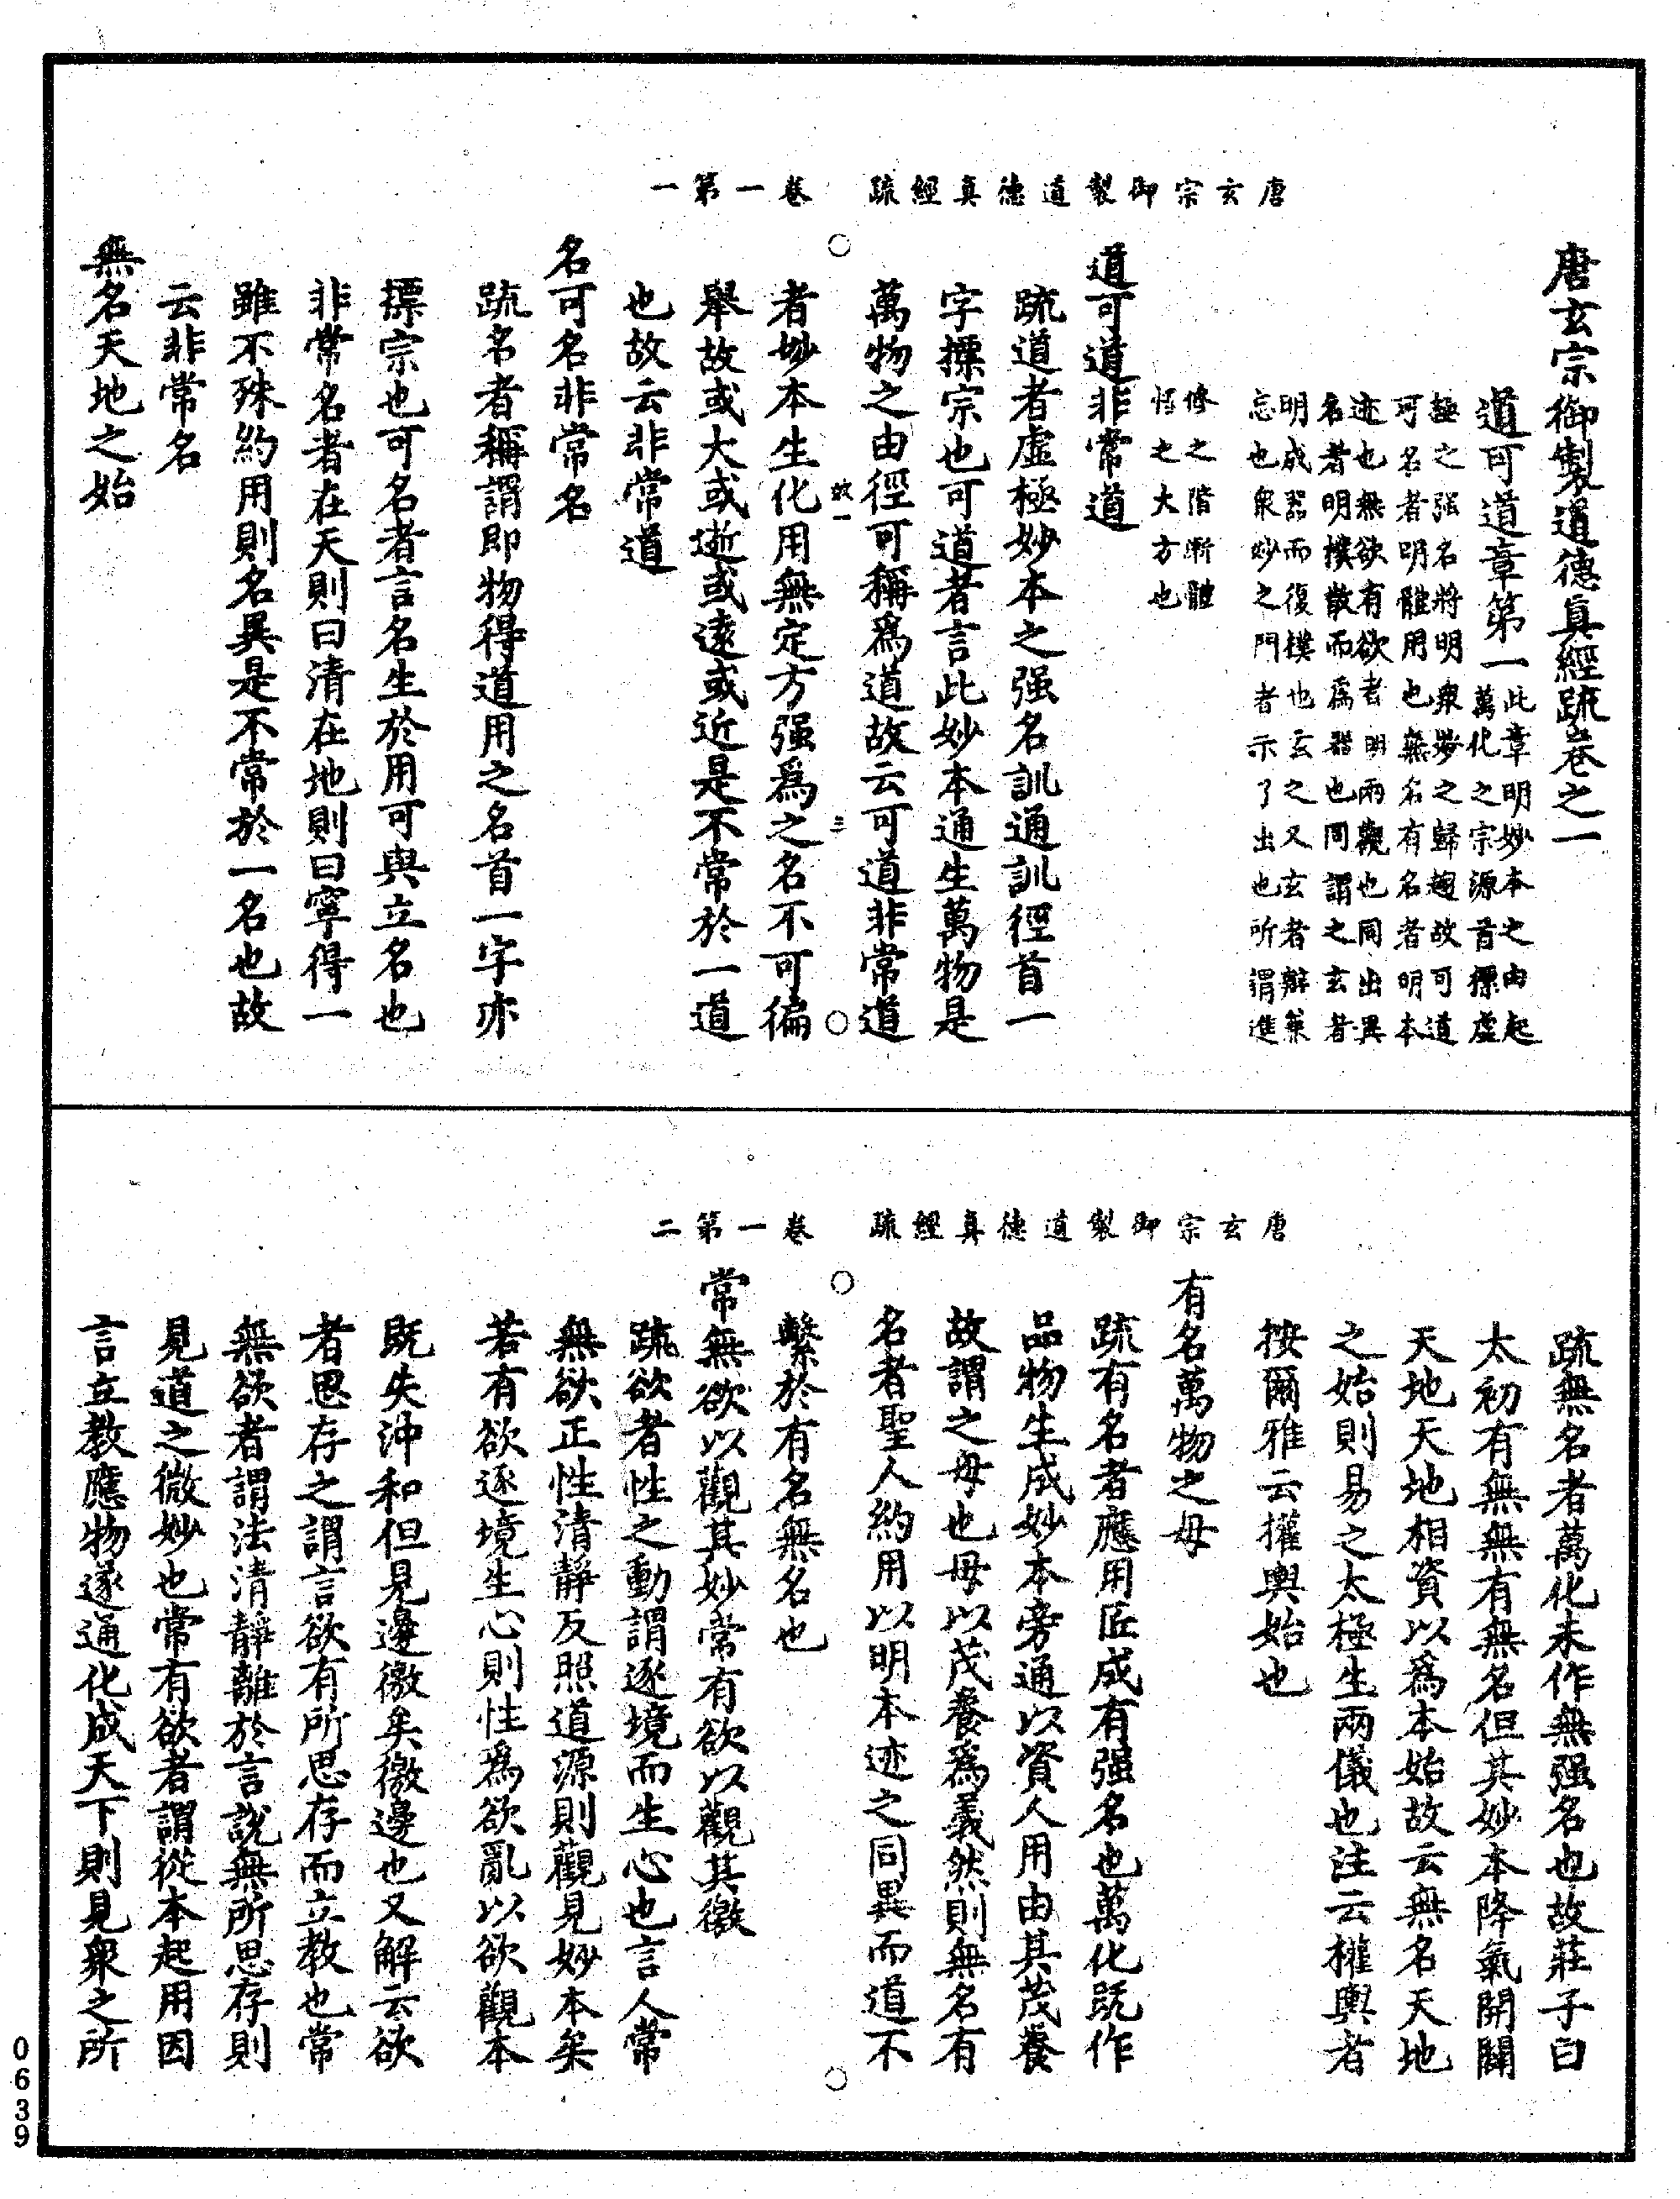 唐玄宗御製道德真經疏　卷一第一
唐玄宗御製道德真經疏卷之一
道可道章第一
此章明妙本之由起
萬化之宗源首摽虛
極之强名將明衆妙之歸趣故可道
可名者明體用也無名有名者明本
迹也無欲有欲者明兩觀也同出異
名者明樸散而爲器也同謂之玄者
明成器而復樸也玄之又玄者辯兼
忘也衆妙之門者示了出也所謂進
修之階漸體
悟之大方也
道可道非常道
疏道者虛極妙本之强名訓通訓徑首一
字摽宗也可道者言此妙本通生萬物是
萬物之由徑可稱爲道故云可道非常道
效一　三
者妙本生化用無定方强爲之名不可徧
舉故或大或逝或遠或近是不常於一道
也故云非常道
名可名非常名
疏名者稱謂即物得道用之名首一字亦
摽宗也可名者言名生於用可與立名也
非常名者在天則曰清在地則曰寧得一
雖不殊約用則名異是不常於一名也故
云非常名
無名天地之始
唐玄宗御製道德真經疏　卷一第二
疏無名者萬化未作無强名也故莊子曰
太初有無無有無名但其妙本降氣開闢
天地天地相資以爲本始故云無名天地
之始則易之太極生兩儀也注云權輿者
按爾雅云權輿始也
有名萬物之母
疏有名者應用匠成有强名也萬化旣作
品物生成妙本旁通以資人用由其茂養
故謂之母也母以茂養爲義然則無名有
名者聖人約用以明本迹之同異而道不
繫於有名無名也
常無欲以觀其妙常有欲以觀其徼
疏欲者性之動謂逐境而生心也言人常
無欲正性清靜反照道源則觀見妙本矣
若有欲逐境生心則性爲欲亂以欲觀本
旣失沖和但見邊徼矣徼邊也又解云欲
者思存之謂言欲有所思存而立教也常
無欲者謂法清靜離於言說無所思存則
見道之微妙也常有欲者謂從本起用因
言立教應物遂通化成天下則見衆之所
0639